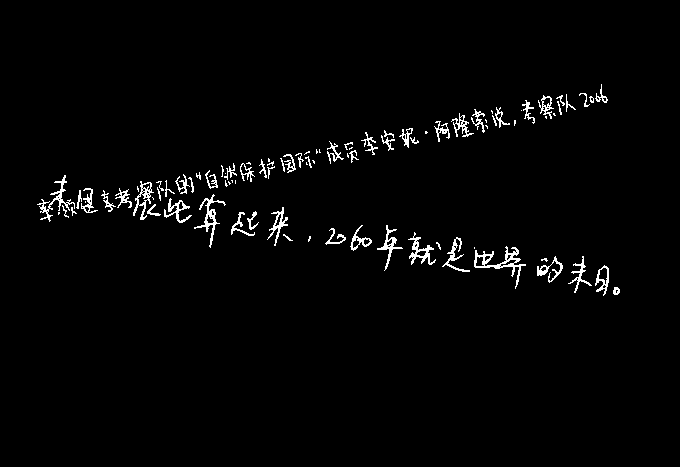 率领这支考察队的“自然保护国际”成员李安妮·阿隆索说，考察队2006
依此算起来，2060年就是世界的末日。